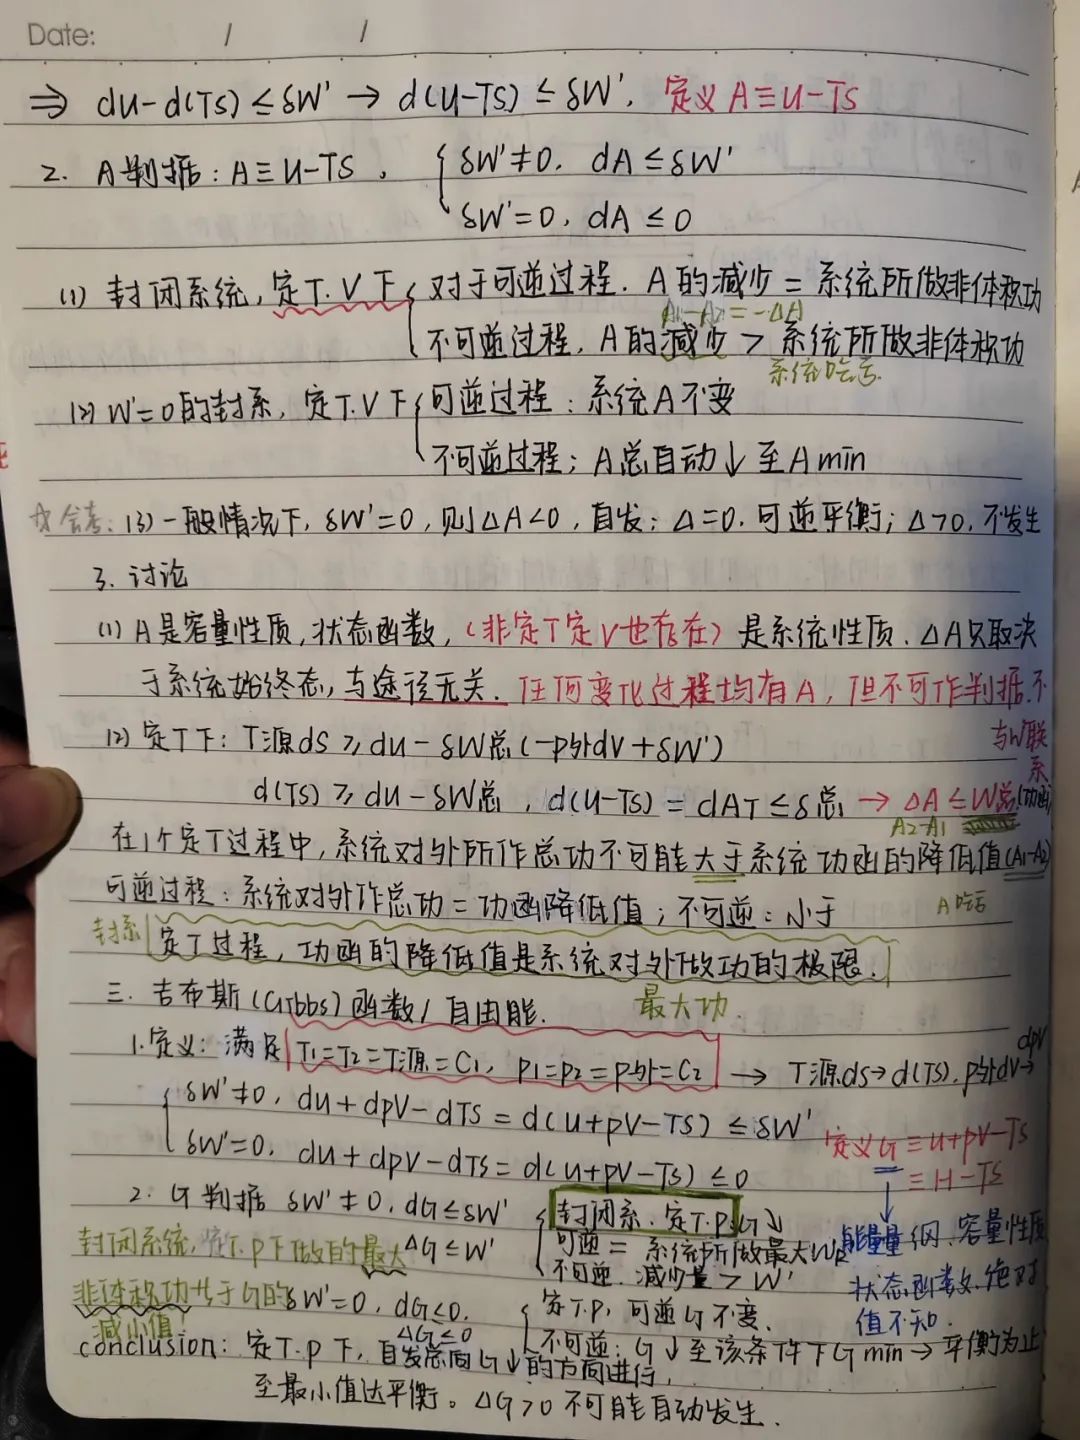 Date: / /
⇒ du-d(TS) ≤ δW' → d(U-TS) ≤ δW'. 定义 A≡U-TS
2. A判据: A≡U-TS。 { δW'≠0. dA≤δW'
δW'=0, dA≤0
(1) 封闭系统, 定T.V下 { 对于可逆过程. A的减少 = 系统所做非体积功
A1-A2=-ΔA
不可逆过程, A的减少 > 系统所做非体积功
系统吃亏.
(2) W'=0的封系, 定T.V下 { 可逆过程: 系统A不变
不可逆过程; A总自动↓至Amin
会考: (3) 一般情况下, δW'=0, 则ΔA<0, 自发; Δ=0. 可逆平衡; Δ>0. 不发生
3. 讨论
(1) A是容量性质, 状态函数, (非定T定V也存在) 是系统性质. ΔA只取决
于系统始终态, 与途径无关. 任何变化过程均有A, 但不可作判据. 不
与W联系
(2) 定T下: T源ds ≥ du-δW总(-p外dV+δW')
d(TS) ≥ du-δW总, d(U-TS) = dAT ≤ δ总 → ΔA ≤ W总
A2-A1
在1个定T过程中, 系统对外所作总功不可能大于系统功函的降低值(A1-A2)
可逆过程: 系统对外作总功 = 功函降低值; 不可逆: 小于
A吃亏
封系 定T过程, 功函的降低值是系统对外做功的极限.
最大功.
三. 吉布斯(Gibbs)函数/自由能.
1. 定义: 满足 T1=T2=T源=C1, p1=p2=p外=C2 → T源ds→d(TS). p外dV→dpV
{ δW'≠0, du+dpV-dTS = d(u+pV-TS) ≤ δW'
δW'=0, du+dpV-dTS = d(u+pV-TS) ≤ 0
定义G≡u+pV-TS
≡H-TS
能量量纲. 容量性质
状态函数. 绝对
值不知.
2. G判据 δW'≠0. dG≤δW' { 封闭系. 定T.p. G↓
ΔG≤W' 可逆 = 系统所做最大WR'
不可逆. 减少量>W'
δW'=0, dG≤0. { 定T.p, 可逆G不变.
ΔG≤0 不可逆: G↓至该条件下Gmin→平衡为止
封闭系统, 定T.p下做的最大
非体积功等于G的
减小值!
conclusion: 定T.p下, 自发总向G↓的方向进行,
至最小值达平衡。ΔG>0不可能自动发生.